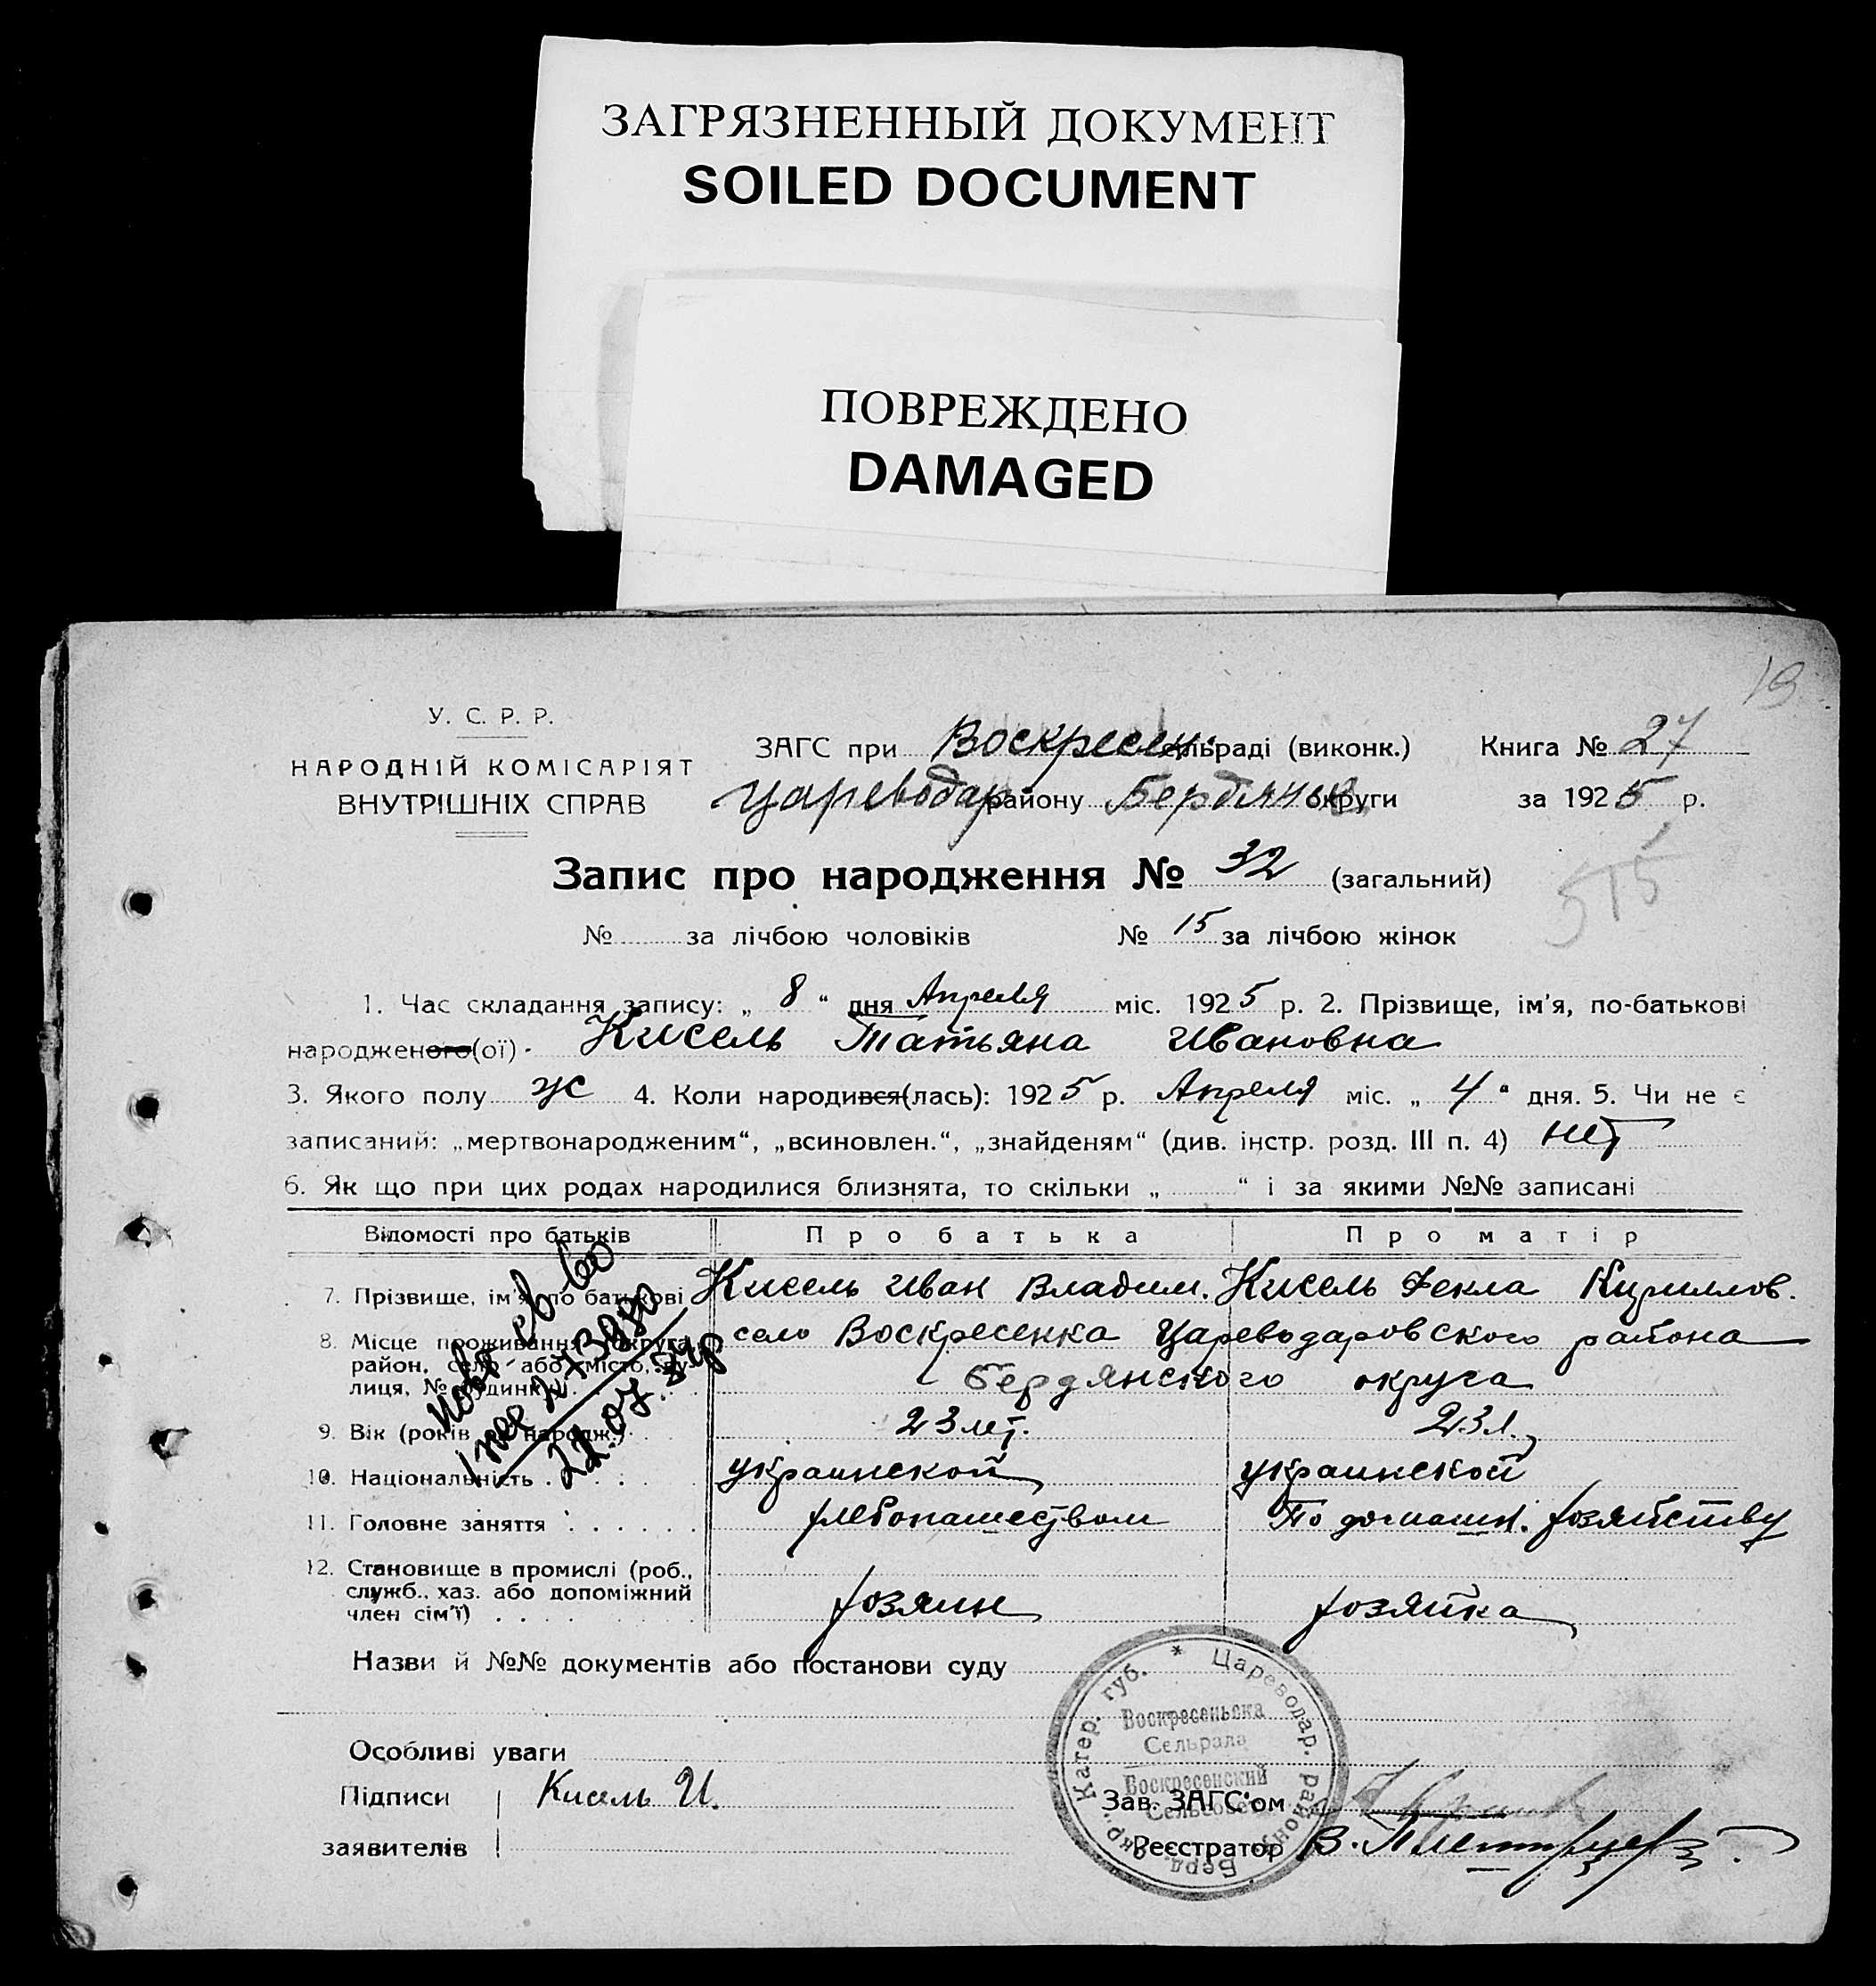 ЗАГРЯЗНЕННЫЙ ДОКУМЕНТ
SOILED DOCUMENT
ПОВРЕЖДЕНО
DAMAGED
19
У. С. Р. Р.
НАРОДНІЙ КОМІСАРІЯТ
ВНУТРІШНІХ СПРАВ
ЗАГС при Воскресен. сільраді (виконк.) Книга № 27
Цареводар району Бердянск. округи за 1925 р.
Запис про народження № 32 (загальний)
515
№ за лічбою чоловіків № 15 за лічбою жінок
1. Час складання запису: „ 8 “ дня Апреля міс. 1925 р. 2. Прізвище, ім'я, по-батькові
народженого(ої) Кисель Татьяна Ивановна
3. Якого полу ж 4. Коли народився(лась): 1925 р. Апреля міс. „ 4 “ дня. 5. Чи не є
записаний: „мертвонародженим“, „всиновлен.“, „знайденям“ (див. інстр. розд. III п. 4) нет
6. Як що при цих родах народилися близнята, то скільки „ “ і за якими №№ записані
Відомості про батьків Про батька Про матір
7. Прізвище, ім'я по батькові Кисель Иван Владим. Кисель Фекла Кириллов.
8. Місце проживання (округа, село Воскресенка Цареводаровского района
район, село або місто, ву-
лиця, № будинку). Бердянского округа
9. Вік (років від народж.) 23 лет. 23 л.
10. Національність украинской украинской
11. Головне заняття хлебопашеством По домашн. хозяйству
12. Становище в промислі (роб.,
служб., хаз. або допоміжний
член сім'ї) хозяин хозяйка
22.07.
Назви й №№ документів або постанови суду
Особливі уваги
Підписи Кисель И.
заявителів
Зав. ЗАГС'ом
Реєстратор В.
* Цареводар. району Берд. окр. Катер. губ.
Воскресенська
Сельрада
Воскресенский
Сельсовет